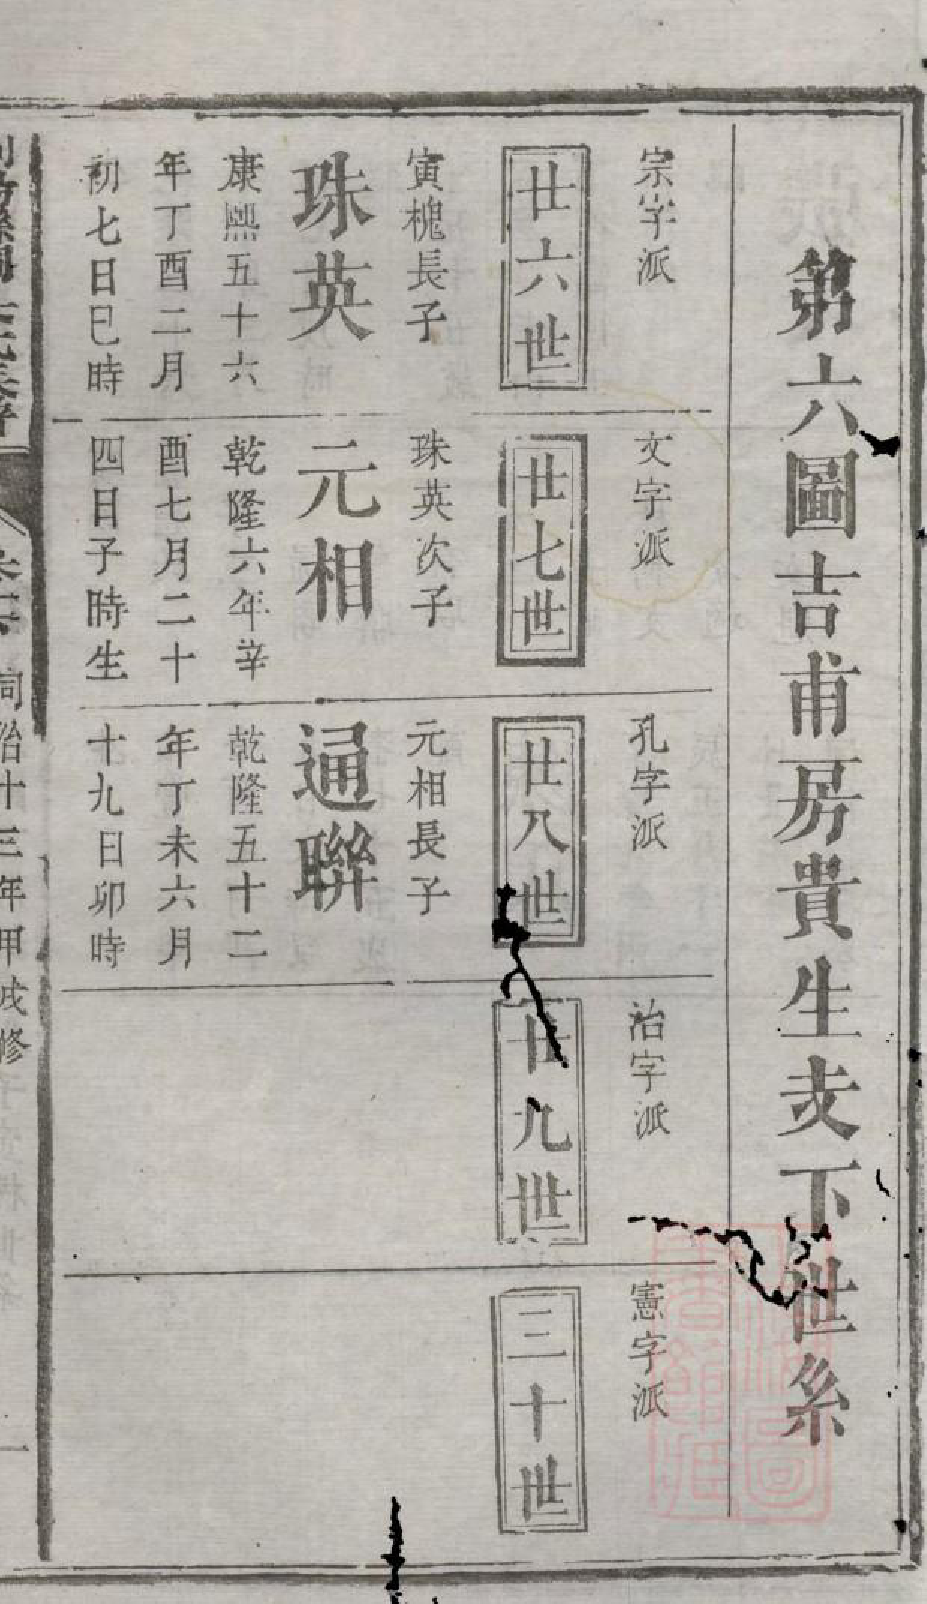 第六圖吉甫房貴生支下世系
宗字派
文字派
孔字派
治字派
憲字派
廿六世
廿七世
廿八世
廿九世
三十世
寅槐長子
珠英
康熙五十六
年丁酉二月
初七日巳時
珠英次子
元相
乾隆六年辛
酉七月二十
四日子時生
元相長子
通聯
乾隆五十二
年丁未六月
十九日卯時
同治十三年甲戌修
一